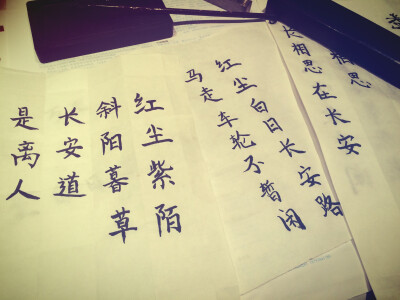 相思
长相思在长安
红尘白日长安路
马走车轮不暂闲
红尘紫陌
斜阳暮草
长安道
是离人